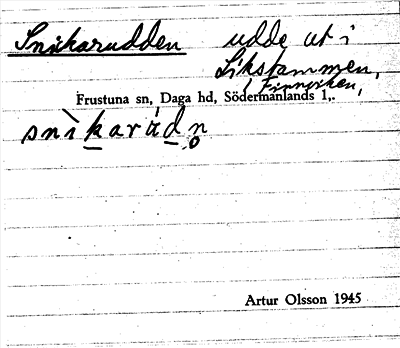 Snikarudden udde ut i
Likstammen,
i
Frustuna sn, Daga hd, Södermanlands l.
snìkaràdn
Artur Olsson 1945